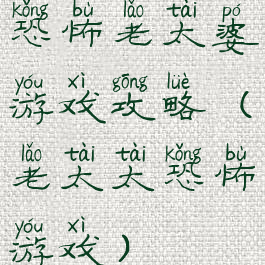 kǒng bù lǎo tài pó
恐怖老太婆
yóu xì gōng lüè
游戏攻略（
lǎo tài tài kǒng bù
老太太恐怖
yóu xì
游戏）